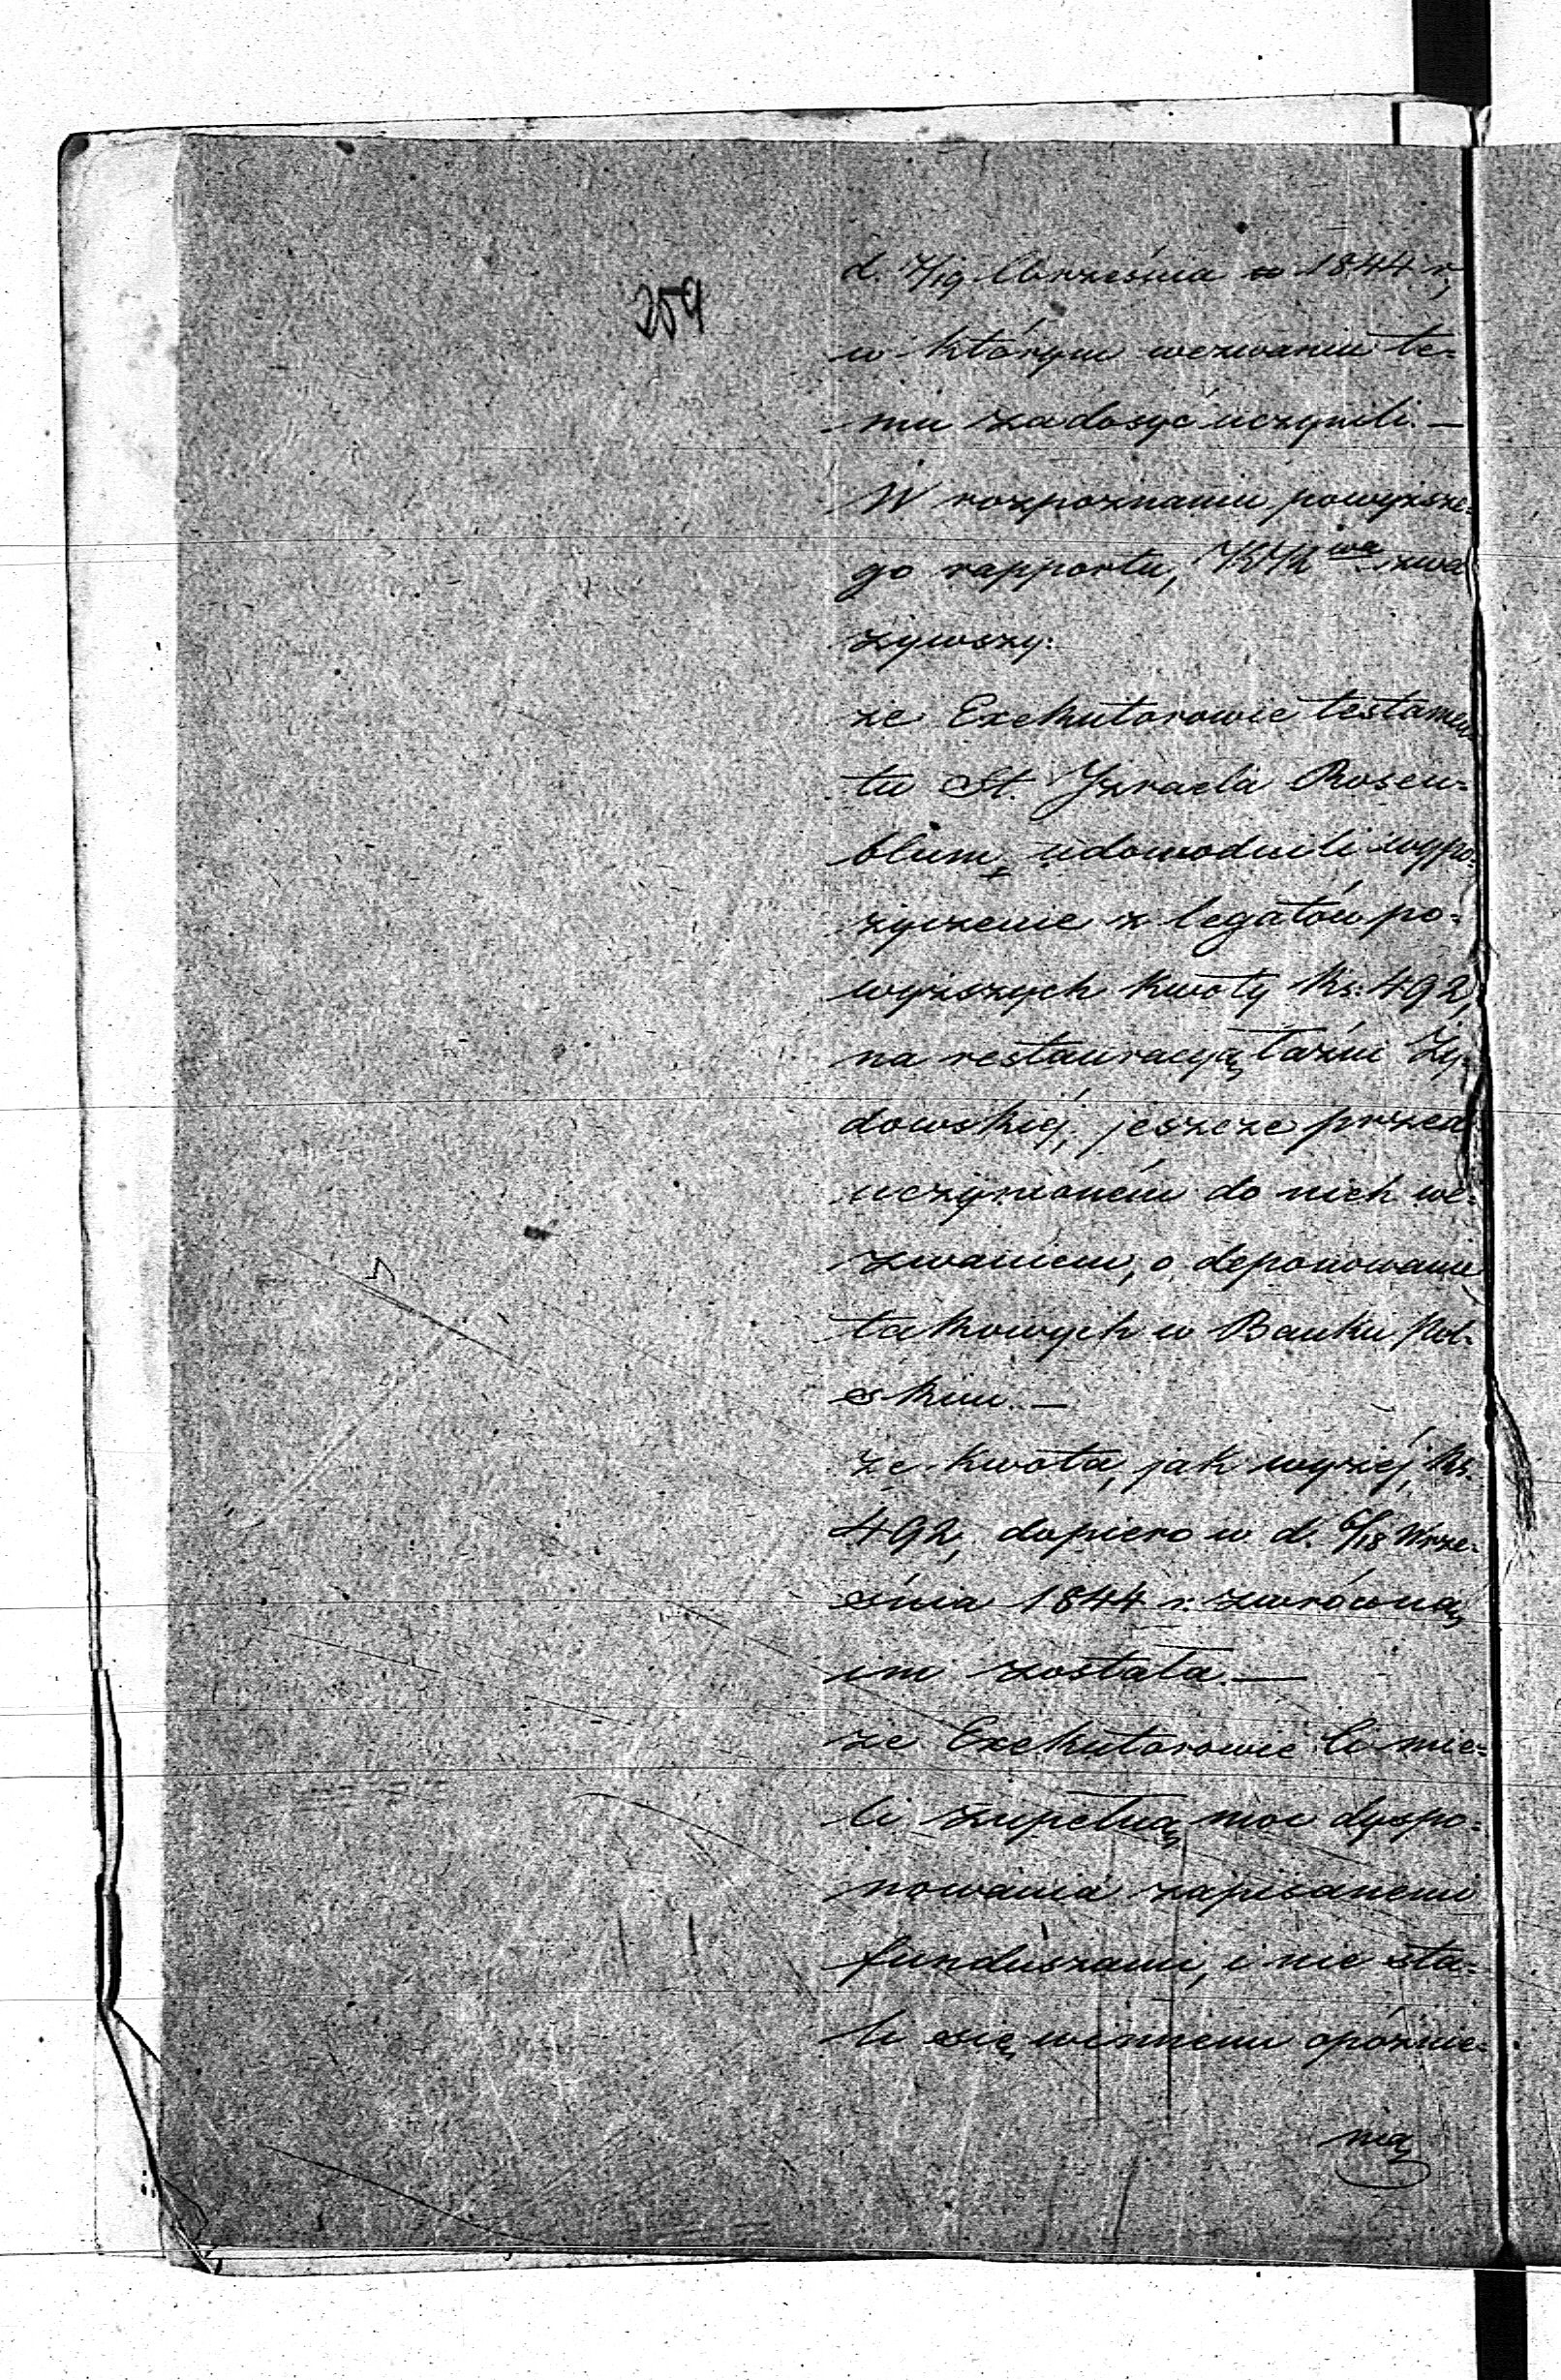 259
d. 7/19 Września 1844 r.,
w którym wezwaniu te-
mu zadosyć uczynili. —
W rozpoznaniu powyższe-
go rapportu, zwa
żywszy:
że Exekutorowie testamen-
tu St. Izraela Rosen-
blum, udowodnili wypo-
życzenie z legatów po-
wyższych kwoty Rs. 492,
na restauracyą łaźni Ży-
dowskiéj, jeszcze przed
uczynioném do nich we-
zwaniem, o deponowanie
takowych w Banku Pol-
skim. —
że kwota, jak wyżéj, Rs.
492, dopiero w d. 6/18 Wrze-
śnia 1844 r. zwróconą
im została. —
że Exekutorowie Ci mie-
li zupełną moc dyspo-
nowania zapisanemi
funduszami, i nie sta-
li się winnemi opóźnie-
nia